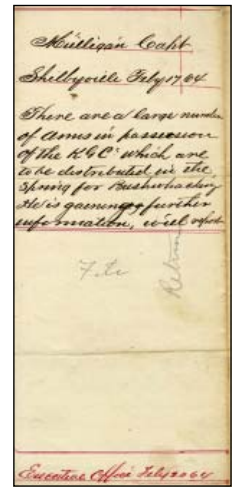 Mulligan Capt
Shelbyville Feby 17 64
There are a large number
of arms in possession
of the KGC's which are
to be distributed in the
Spring for Bushwhacking
He is gaining further
information, will report
Return
Executive Office Feby 20 64